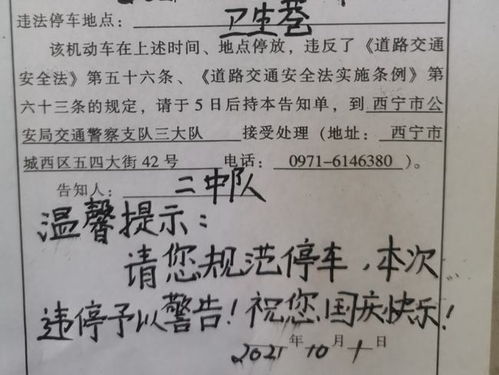 违法停车地点：卫生巷
该机动车在上述时间、地点停放，违反了《道路交通
安全法》第五十六条、《道路交通安全法实施条例》第
六十三条的规定，请于5日后持本告知单，到西宁市公
安局交通警察支队三大队 接受处理（地址： 西宁市
城西区五四大街42号 电话： 0971-6146380）。
告知人： 二中队
温馨提示：
请您规范停车，本次
违停予以警告！祝您国庆快乐！
2021年10月1日